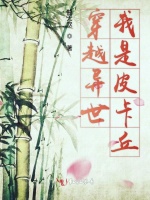 我是皮卡丘
穿越异世
著